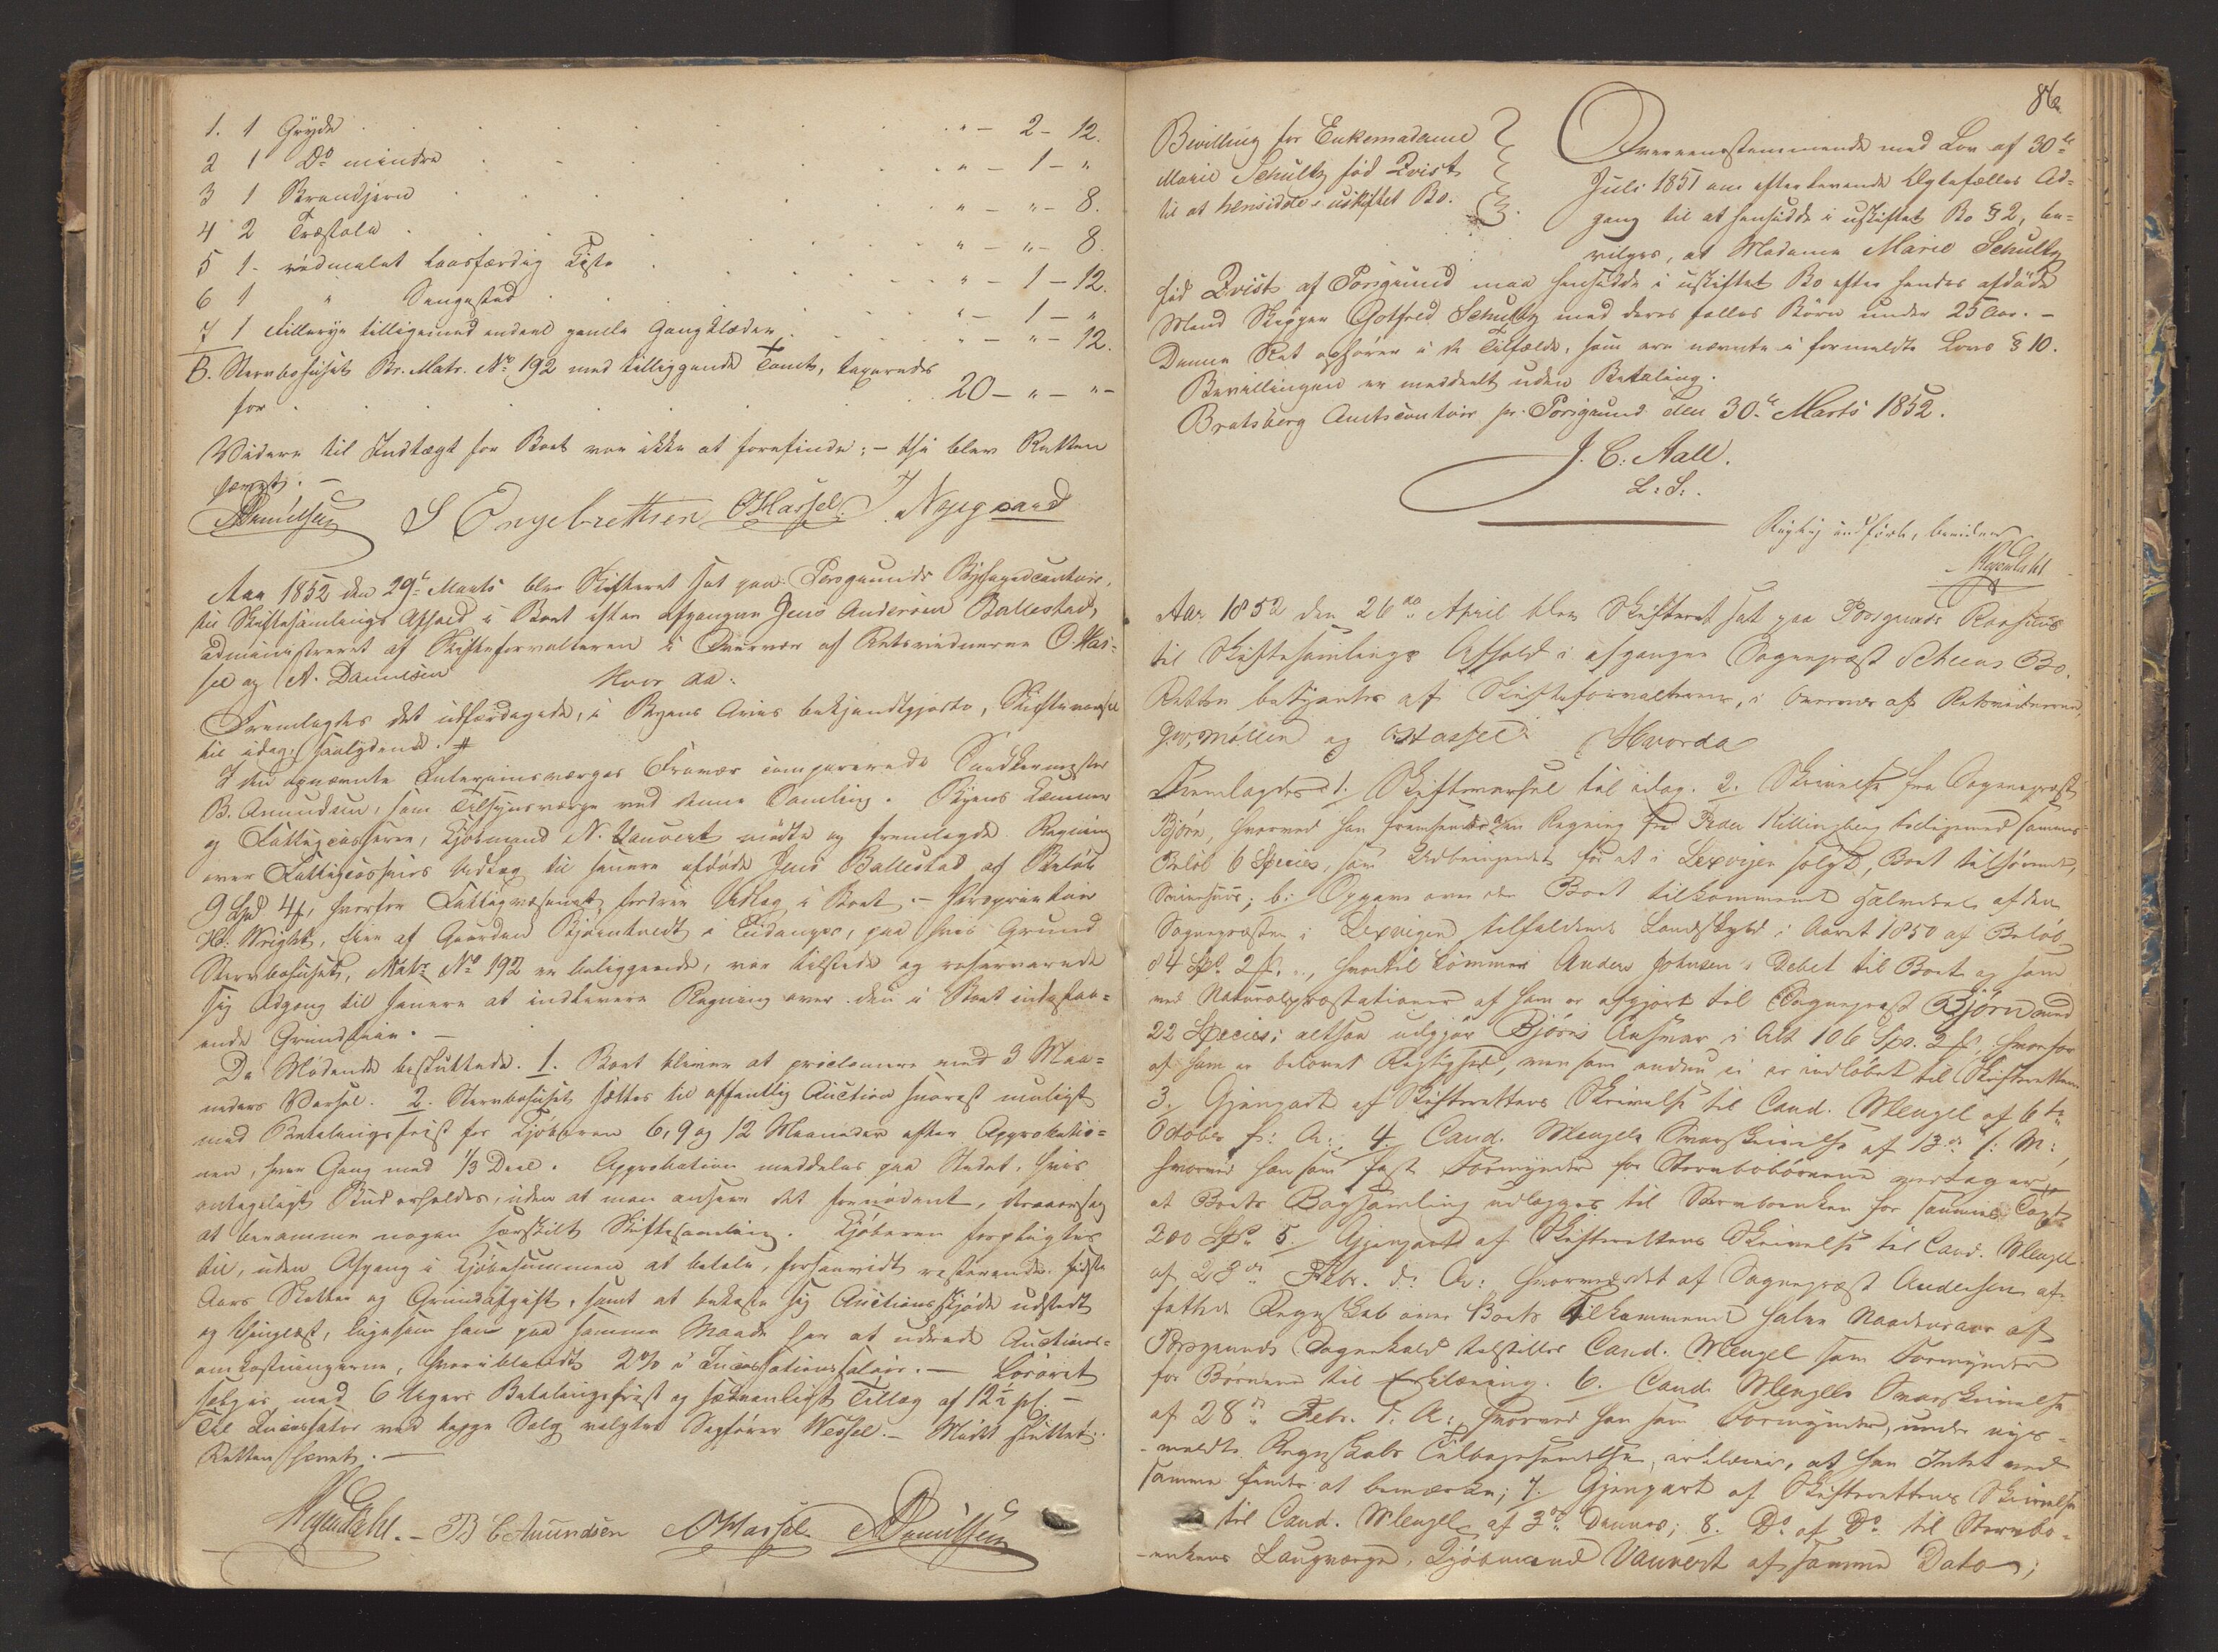 1. 1 Gryde " - 2 - 12.
2 1 Do mindre " - 1 - "
3 1 Brandjern " - " - 8.
4 2 Træstole " - " - 8.
5 1 rödmalet laasfærdig Kiste " - 1 - 12.
6 1 " Sengested " - 1 - "
7 1 tilligemed endeel gamle Gangklæder " - " - 12.
B. Sterbohuset Br. Matr. No 192 med tilliggende Tomt, taxeredes
for 20 - " - "
Videre til Indtægt for Boet var ikke at forefinde; - thi blev Retten
hævet. -
ADanielsen S Engebrethsen OHassel. J. Nygaard
Aar 1852 den 29de Marts blev Skifteret sat paa Porsgrunds Byfogedcontoir,
til Skiftesamlings Afhold i Boet efter afgangne Jens Andersen Ballestad,
administreret af Skifteforvalteren i Overvær af Retsvidnerne O. Has-
sel og A. Danielsen Hvor da:
Fremlagdes det udfærdigede, i Byens Avis bekjendtgjorte, Skiftevarsel
til idag, saalydende. #
I den opnævnte Interimsværges Fravær comparerede Tandkermester
B. Amundsen, som Tilsynsværge ved denne Samling. Byens Kæmner
og Fattigcasserer, Kjöbmand N. Vauvert mödte og fremlagde Regning
over Fattigcassens Udlæg til senere afdöde Jens Ballestad af Belöb
9 Spd 4 , hvorfor Fattigvæsenet fordrer Udlæg i Boet. - Proprietair
Hs. Wright, Eier af Gaarden Bjørntvedt i Eidanger, paa hvis Grund
Sterbohuset, Matr No 192 er beliggende, var tilstede og reserverede
sig Adgang til senere at indlevere Regning over den i Boet indestaa-
ende Grundleie. -
De Mödende besluttede. 1. Boet bliver at proclamere med 3 Maa-
neders Varsel. 2. Sterbohuset sættes til offentlig Auction snarest muligst
med Betalingsfrist for Kjöberen 6, 9 og 12 Maaneder efter Approbatio-
nen, hver Gang med 1/3 Deel. Approbation meddeles paa Stedet, hvis
antageligt Bud erholdes, uden at man anseer det fornödent, derover
at beramme nogen særskilt Skiftesamling. Kjöberen forpligtes
til, uden Afgang i Kjöbesummen at betale, forsaavidt resterende, sidste
Aars Skatter og Grundafgift, samt at bekoste sig Auctionsskjöde udstedt
og thinglæst, ligesom han paa samme Maade har at udrede Auctions-
omkostningerne, hvoriblandt 2 % i Incassationssalair. - Lösöret
sælges med 6 Ugers Betalingsfrist og sædvanligt Tillæg af 12½ pC. -
Til Incassator ved begge Salg valgtes Sagförer Wessel. - Mödet sluttet.
Retten hævet. -
B C Amundsen OHassel ADanielsen
86
Bevilling for Enkemadame
Marie Schultz född Qvist
til at hensidde i uskiftet Bo.
Overeensstemmende med Lov af 30te
Juli 1851 om efterlevende Ægtefælles Ad-
gang til at hensidde i uskiftet Bo § 2, be-
vilges, at Madame Marie Schultz
född Qvist af Porsgrund maa hensidde i uskiftet Bo efter hendes afdöde
Mand Skipper Gotfred Schultz med deres fælles Börn under 25 Aar. -
Denne Ret ophörer i de Tilfælde, som ere nævnte i formeldte Lovs § 10.
Bevillingen er meddeelt uden Betaling.
Bratsberg Amtscontoir pr. Porsgrund den 30te Marts 1852.
J. C. Aall.
L: S:.
Rigtig indfört, bevidner
Aar 1852 den 26de April blev Skifteret sat paa Porsgrunds Raadhuus
til Skiftesamlings Afhold i afgangne Sognepræst Scheens Bo.
Retten betjentes af Skifteforvalteren, i Overvær af Retsvidnerne,
Møller og OHassel Hvorda
Fremlagdes: 1. Skiftevarsel til idag. 2. Skrivelse fra Sognepræst
Bjørn, hvorved han fremsender en Regning fra Peder Killingberg tilligemed sammes
Belöb 6 Species, som Udbringendet for et i Lexvigen solgt, Boet tilhørende,
; b: Opgave over den Boet tilkommende Halvdeel af den
Sognepræsten i Lexvigen tilfaldende Landskyld i Aaret 1850 af Belöb
84 Spd. 2 ., hvortil kommer Anders Johnsens Debet til Boet og som
ved Naturalpræstationer af ham er afgjort til Sognepræst Bjørn med
22 Species; altsaa udgjør Bjørns Ansvar i Alt 106 Spd. 2 , hvorfor
af ham er belovet Rigtighed, men som endnu ei er indløbet til Skifteretten.
3. Gjenpart af Skifterettens Skrivelse til Cand. Mengel af 6te
October f: A: 4. Cand. Mengels Svarskrivelse af 13de s: M:,
hvorved han som fast Formynder for Sterbobørnene vedtager,
at Boets Bogsamling udlægges til Sterboenken for sammes Taxt
200 Spd. 5. Gjenpart af Skifterettens Skrivelse til Cand. Mengel
af 23de Febr. d: A: hvorved det af Sognepræst Andersen af-
fattede Regnskab over Boets tilkommende halve Naadensaar af
Porsgrunds Sognekald tilstilles Cand. Mengel som Formynder
for Børnene til Erklæring. 6. Cand. Mengels Svarskrivelse
af 28de Febr. s: A: hvorved han som Formynder, under nys-
meldte Regnskabs Tilbagesendelse, erklærer, at han Intet ved
samme finder at bemærke; 7. Gjenpart af Skifterettens Skrivelse
til Cand. Mengel af 3de Dennes; 8. Do af Do til Sterbo-
enkens Laugværge, Kjöbmand Vauvert af samme Dato;